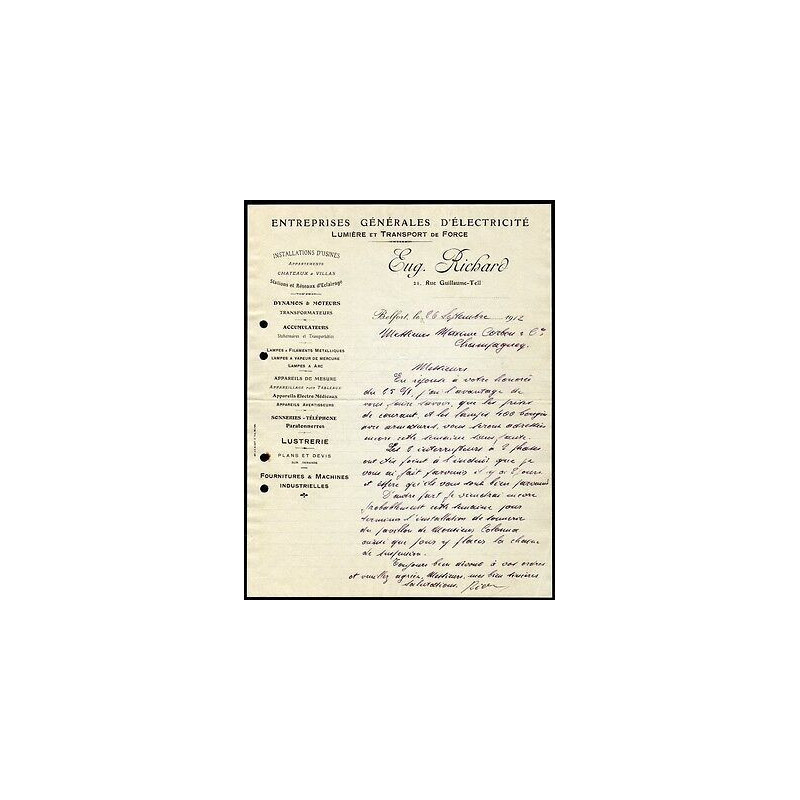 ENTREPRISES GÉNÉRALES D'ÉLECTRICITÉ
LUMIÈRE ET TRANSPORT DE FORCE
Eug. Richard
21, RUE GUILLAUME-TELL
INSTALLATIONS D'USINES
APPARTEMENTS
CHATEAUX & VILLAS
Stations et Réseaux d'Eclairage
DYNAMOS & MOTEURS
TRANSFORMATEURS
ACCUMULATEURS
Stationnaires et Transportables
LAMPES A FILAMENTS METALLIQUES
LAMPES A VAPEUR DE MERCURE
LAMPES A ARC
APPAREILS DE MESURE
APPAREILLAGE POUR TABLEAUX
Appareils Electro Médicaux
APPAREILS AVERTISSEURS
SONNERIES - TÉLÉPHONE
Paratonnerres
LUSTRERIE
PLANS ET DEVIS
SUR DEMANDE
FOURNITURES & MACHINES
INDUSTRIELLES
Belfort, le 26 Septembre 1912
Messieurs Maxime & Cie
Champagney
Messieurs
En réponse à votre honorée
du 25 j'ai l'avantage de
vous faire savoir, que les prises
de courant, et les lampes 400 bougies
avec armatures, vous seront adressées
encore cette semaine sans faute.
Les 2 interrupteurs à 2 phases
ont été joint à l'enduit que je
vous ai fait parvenir il y a 2 jours
et espère qu'ils vous sont bien parvenus
D'autre part je viendrai encore
probablement cette semaine pour
terminer l'installation de sonnerie
du pavillon de Monsieur Colonna
ainsi que pour y placer la
de suspension.
Toujours bien dévoué à vos ordres
et veuillez agréer, Messieurs, mes bien sincères
salutations.